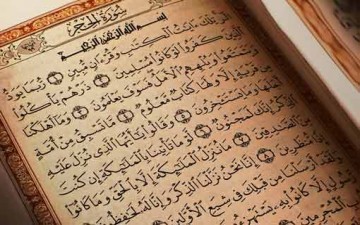 سُورَةُ الحِجْر
بِسْمِ اللَّهِ الرَّحْمَٰنِ الرَّحِيمِ
الٓر تِلْكَ ءَايَٰتُ الْكِتَٰبِ وَقُرْءَانٍ مُّبِينٍ ١ رُّبَمَا يَوَدُّ
الَّذِينَ كَفَرُوا لَوْ كَانُوا مُسْلِمِينَ ٢ ذَرْهُمْ يَأْكُلُوا
وَيَتَمَتَّعُوا وَيُلْهِهِمُ الْأَمَلُ فَسَوْفَ يَعْلَمُونَ ٣ وَمَا أَهْلَكْنَا
مِن قَرْيَةٍ إِلَّا وَلَهَا كِتَابٌ مَّعْلُومٌ ٤ مَّا تَسْبِقُ مِنْ أُمَّةٍ
أَجَلَهَا وَمَا يَسْتَـْٔخِرُونَ ٥ وَقَالُوا يَٰأَيُّهَا الَّذِي نُزِّلَ عَلَيْهِ
الذِّكْرُ إِنَّكَ لَمَجْنُونٌ ٦ لَّوْ مَا تَأْتِينَا بِالْمَلَٰئِكَةِ إِن كُنتَ
مِنَ الصَّٰدِقِينَ ٧ مَا نُنَزِّلُ الْمَلَٰئِكَةَ إِلَّا بِالْحَقِّ وَمَا كَانُوا
إِذًا مُّنظَرِينَ ٨ إِنَّا نَحْنُ نَزَّلْنَا الذِّكْرَ وَإِنَّا لَهُ لَحَٰفِظُونَ
وَلَقَدْ أَرْسَلْنَا مِن قَبْلِكَ فِي شِيَعِ الْأَوَّلِينَ
رَّسُولٍ إِلَّا كَانُوا بِهِ يَسْتَهْزِءُونَ
الْمُجْرِمِينَ